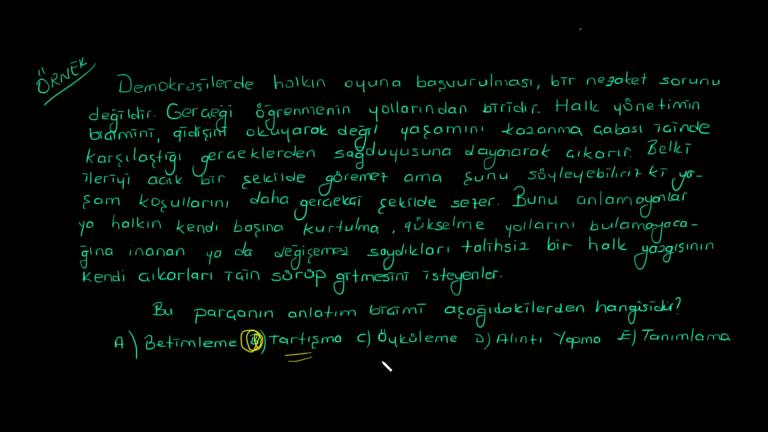 ÖRNEK
Demokrasilerde halkın oyuna başvurulması, bir nezaket sorunu
değildir. Gerçeği öğrenmenin yollarından biridir. Halk yönetimin
biçimini, gidişini okuyarak değil yaşamını kazanma çabası içinde
karşılaştığı gerçeklerden sağduyusuna dayanarak çıkarır. Belki
ileriyi açık bir şekilde göremez ama şunu söyleyebiliriz ki ya-
şam koşullarını daha gerçekçi şekilde sezer. Bunu anlamayanlar
ya halkın kendi başına kurtulma, yükselme yollarını bulamayaca-
ğına inanan ya da değişmez saydıkları talihsiz bir halk yazgısının
kendi çıkarları için sürüp gitmesini isteyenler.
Bu parçanın anlatım biçimi aşağıdakilerden hangisidir?
A) Betimleme B) Tartışma C) Öyküleme D) Alıntı Yapma E) Tanımlama